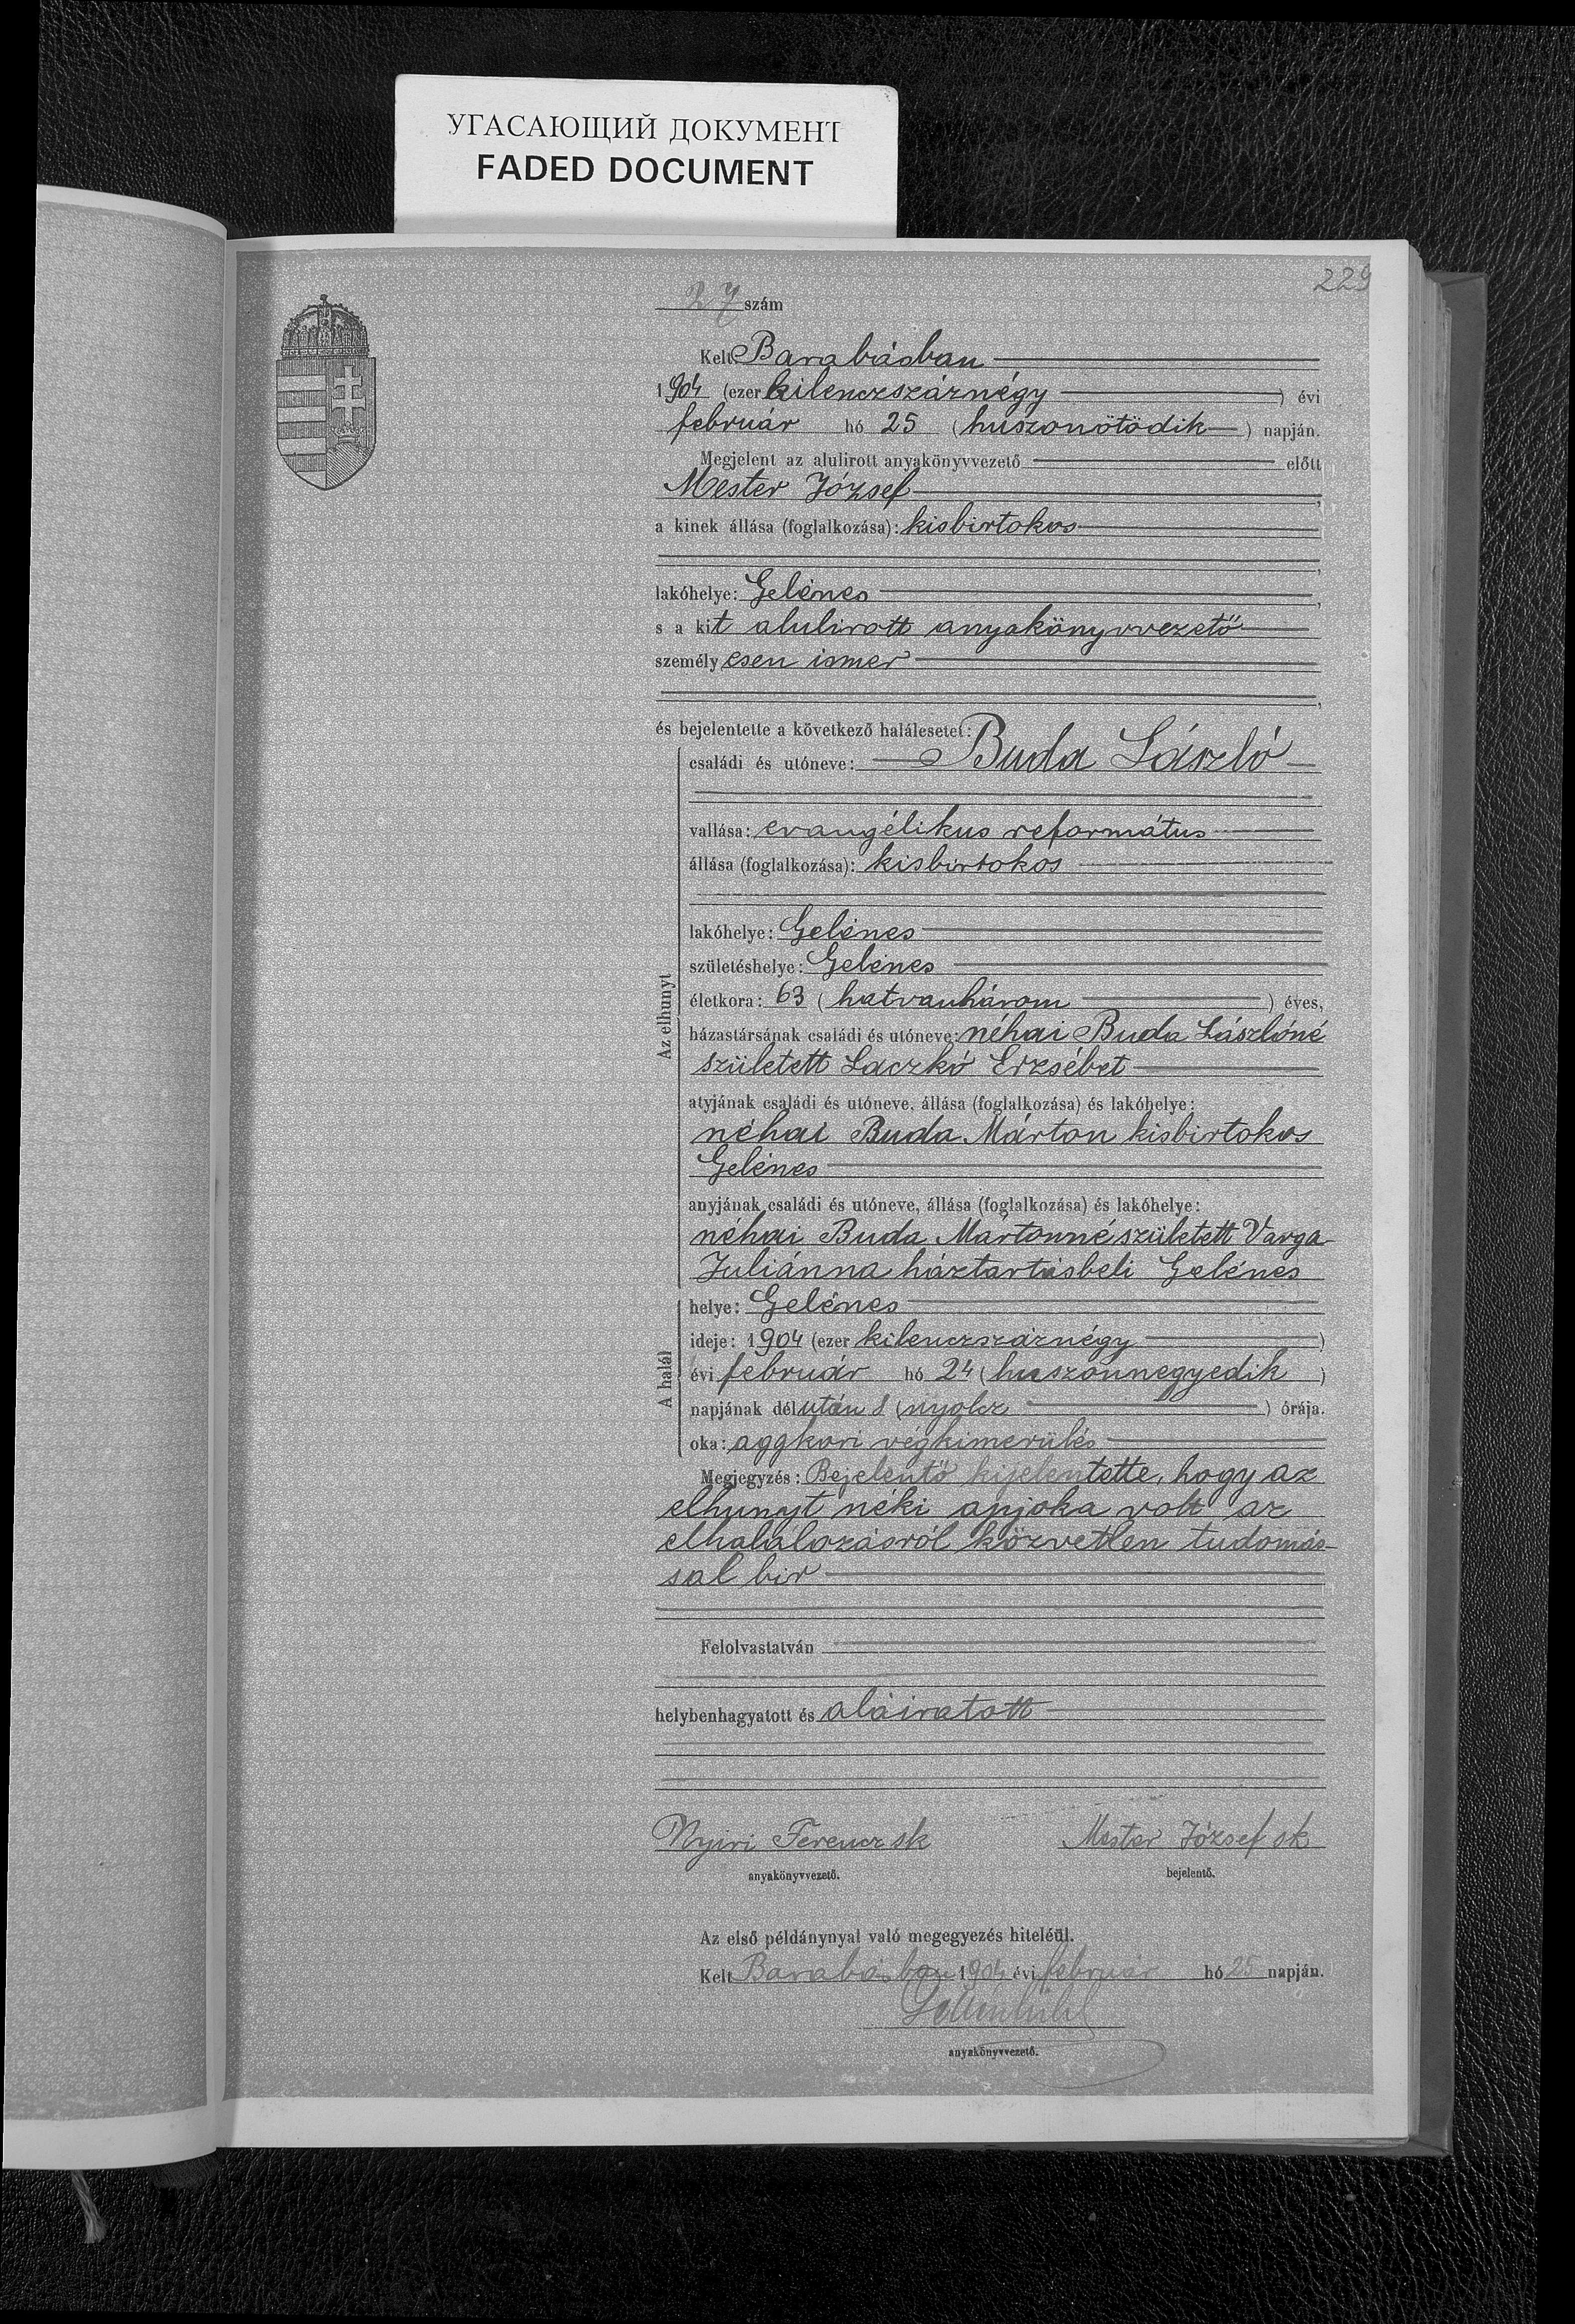 УГАСАЮЩИЙ ДОКУМЕНТ
FADED DOCUMENT
229
27 szám
Kelt Barabásban
1904 (ezer kilenczszáznégy) évi
február hó 25 (huszonötödik) napján.
Megjelent az alulirott anyakönyvvezető előtt
Mester József,
a kinek állása (foglalkozása): kisbirtokos
,
lakóhelye: Gelénes,
s a kit alulirott anyakönyvvezető
személyesen ismer
,
és bejelentette a következő halálesetet:
Az elhunyt
családi és utóneve: Buda László
vallása: evangélikus református
állása (foglalkozása): kisbirtokos
lakóhelye: Gelénes
születéshelye: Gelénes
életkora: 63 (hatvanhárom) éves,
házastársának családi és utóneve: néhai Buda Lászlóné
született Laczkó Erzsébet
atyjának családi és utóneve, állása (foglalkozása) és lakóhelye:
néhai Buda Márton kisbirtokos
Gelénes
anyjának családi és utóneve, állása (foglalkozása) és lakóhelye:
néhai Buda Mártonné született Varga
Juliánna háztartásbeli Gelénes
A halál
helye: Gelénes
ideje: 1904 (ezer kilenczszáznégy)
évi február hó 24 (huszonnegyedik)
napjának délután 8 (nyolcz) órája.
oka: aggkori végkimerülés
Megjegyzés: Bejelentő kijelentette, hogy az
elhunyt néki apjoka volt az
elhalálozásról közvetlen tudomás-
sal bir
Felolvastatván
helybenhagyatott és aláiratott
Nyiri Ferencz sk
Mester József sk
anyakönyvvezető.
bejelentő.
Az első példánynyal való megegyezés hiteléül.
Kelt Barabásban 1904 évi február hó 25 napján.
anyakönyvvezető.